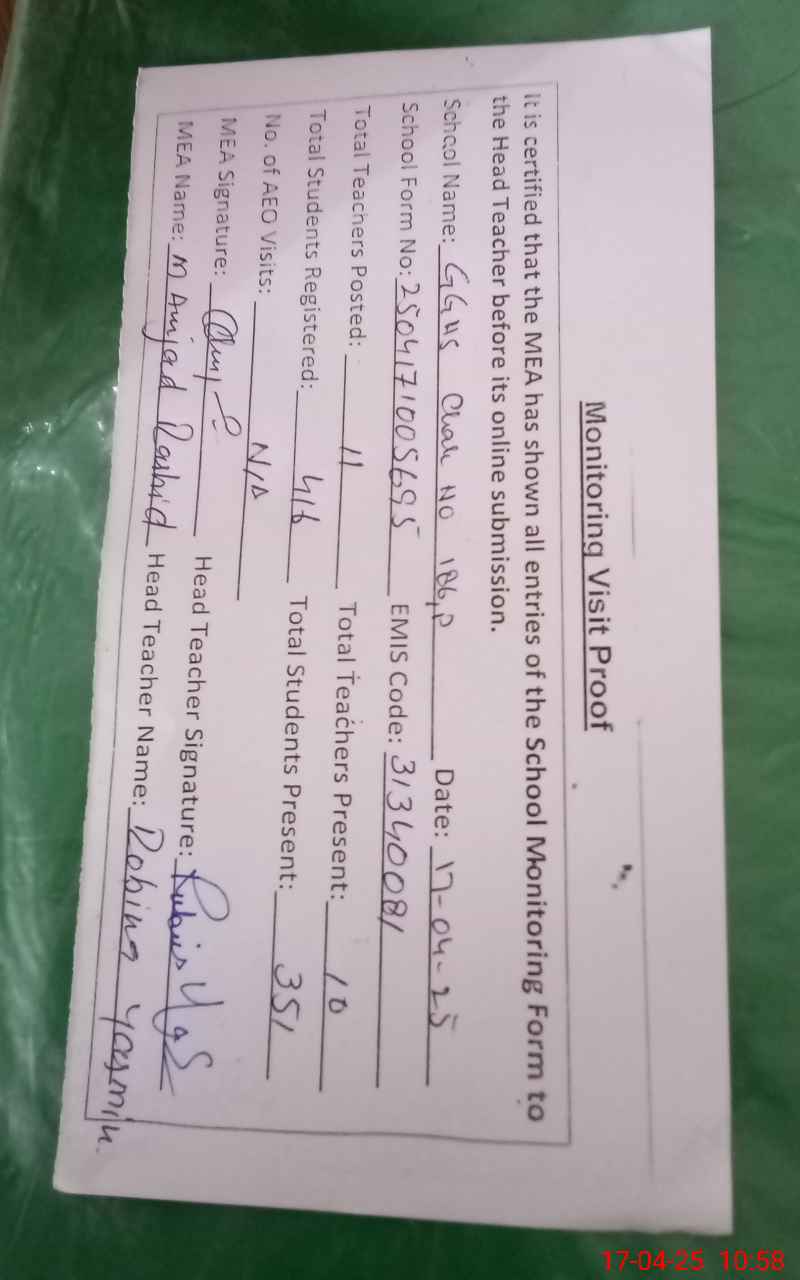 Monitoring Visit Proof
It is certified that the MEA has shown all entries of the School Monitoring Form to
the Head Teacher before its online submission.
School Name: GGHS Chak NO 186,P Date: 17-04-25
School Form No: 2504171005695 EMIS Code: 31340081
Total Teachers Posted: 11 Total Teachers Present: 10
Total Students Registered: 416 Total Students Present: 351
No. of AEO Visits: N/A
MEA Signature: Head Teacher Signature:
MEA Name: M Amjad Rashid Head Teacher Name: Robina Yasmin.
17-04-25 10:58